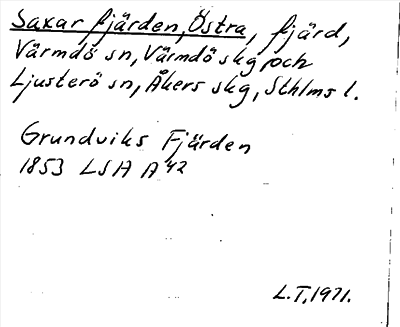 Saxarfjärden, Östra, fjärd,
Värmdö sn, Värmdö skg och
Ljusterö sn, Åkers skg, Sthlms l.
Grundviks Fjärden
1853 LSA A 42
L.T. 1971.